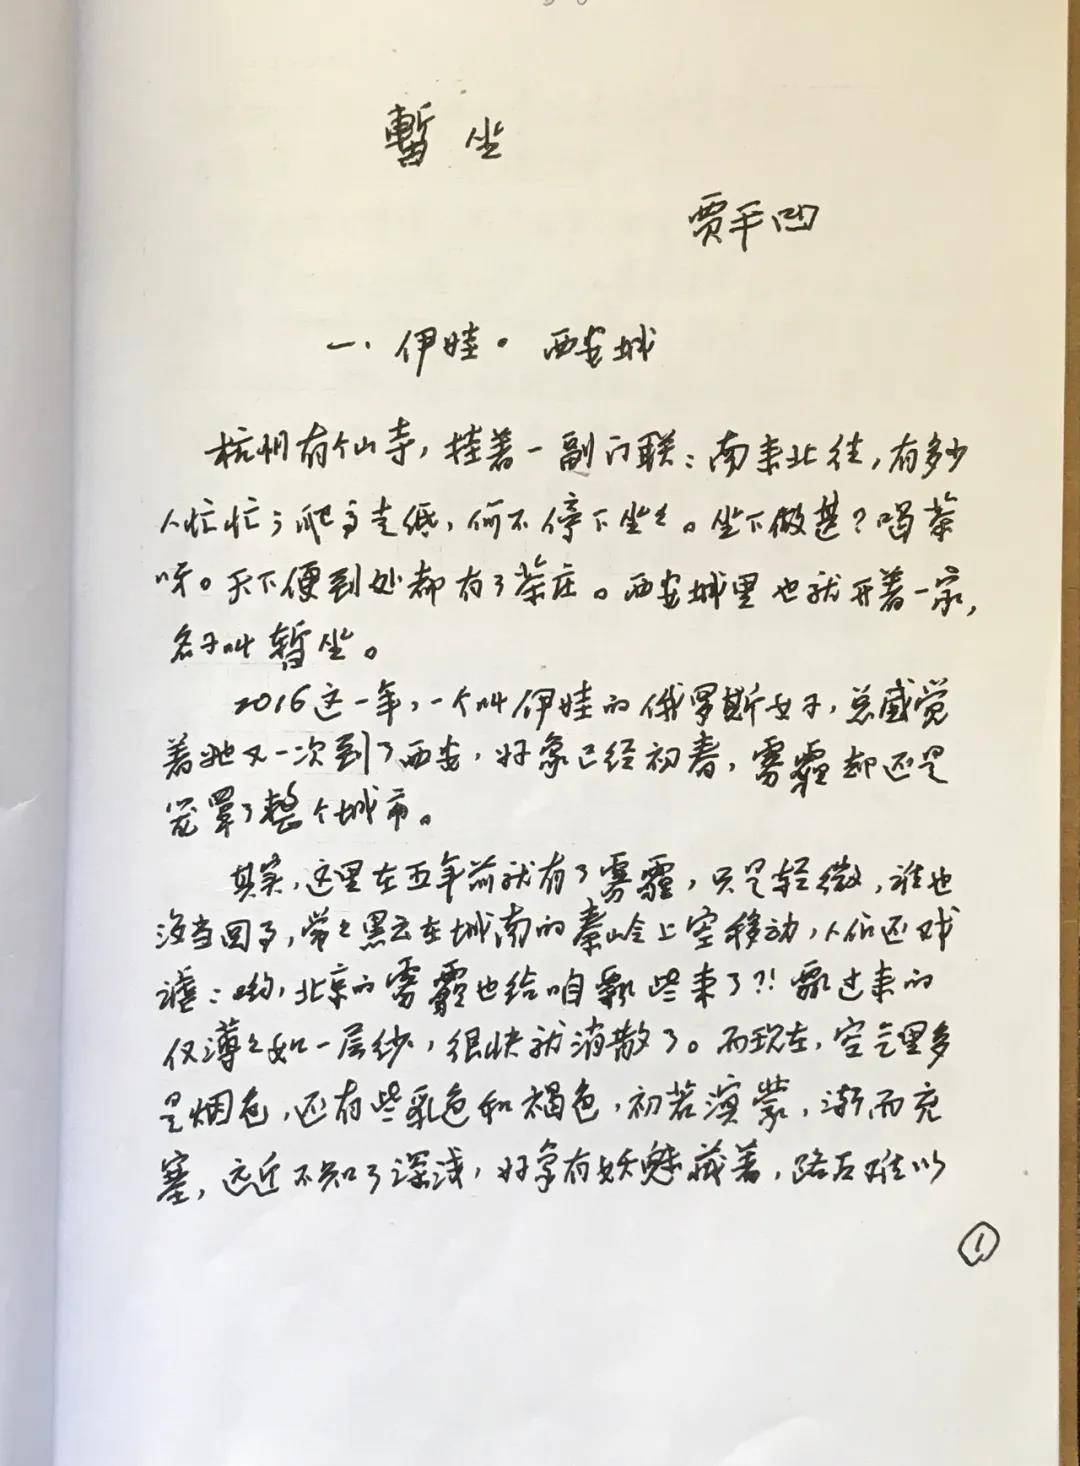 暫坐
贾平凹
一、伊娃。西安城
杭州有个山寺，挂着一副门联：南来北往，有多少
人忙忙；爬高走低，何不停下坐坐。坐下做甚？喝茶
呀。天下便到处都有了茶庄。西安城里也就开着一家，
名子叫暂坐。
2016这一年，一个叫伊娃的俄罗斯女子，总感觉
着她又一次到了西安，好象已经初春，雾霾却还是
笼罩了整个城市。
其实，这里在五年前就有了雾霾，只是轻微，谁也
没当回事，常々黑云在城南的秦岭上空移动，人们还戏
谑：哟，北京的雾霾也给咱飘些来了?! 飘过来的
仅薄々如一层纱，很快就消散了。而现在，空气里多
是烟色，还有些乳色和褐色，初若溟蒙，渐而充
塞，远近不知了深浅，好象有妖魅藏着，路石难以
①